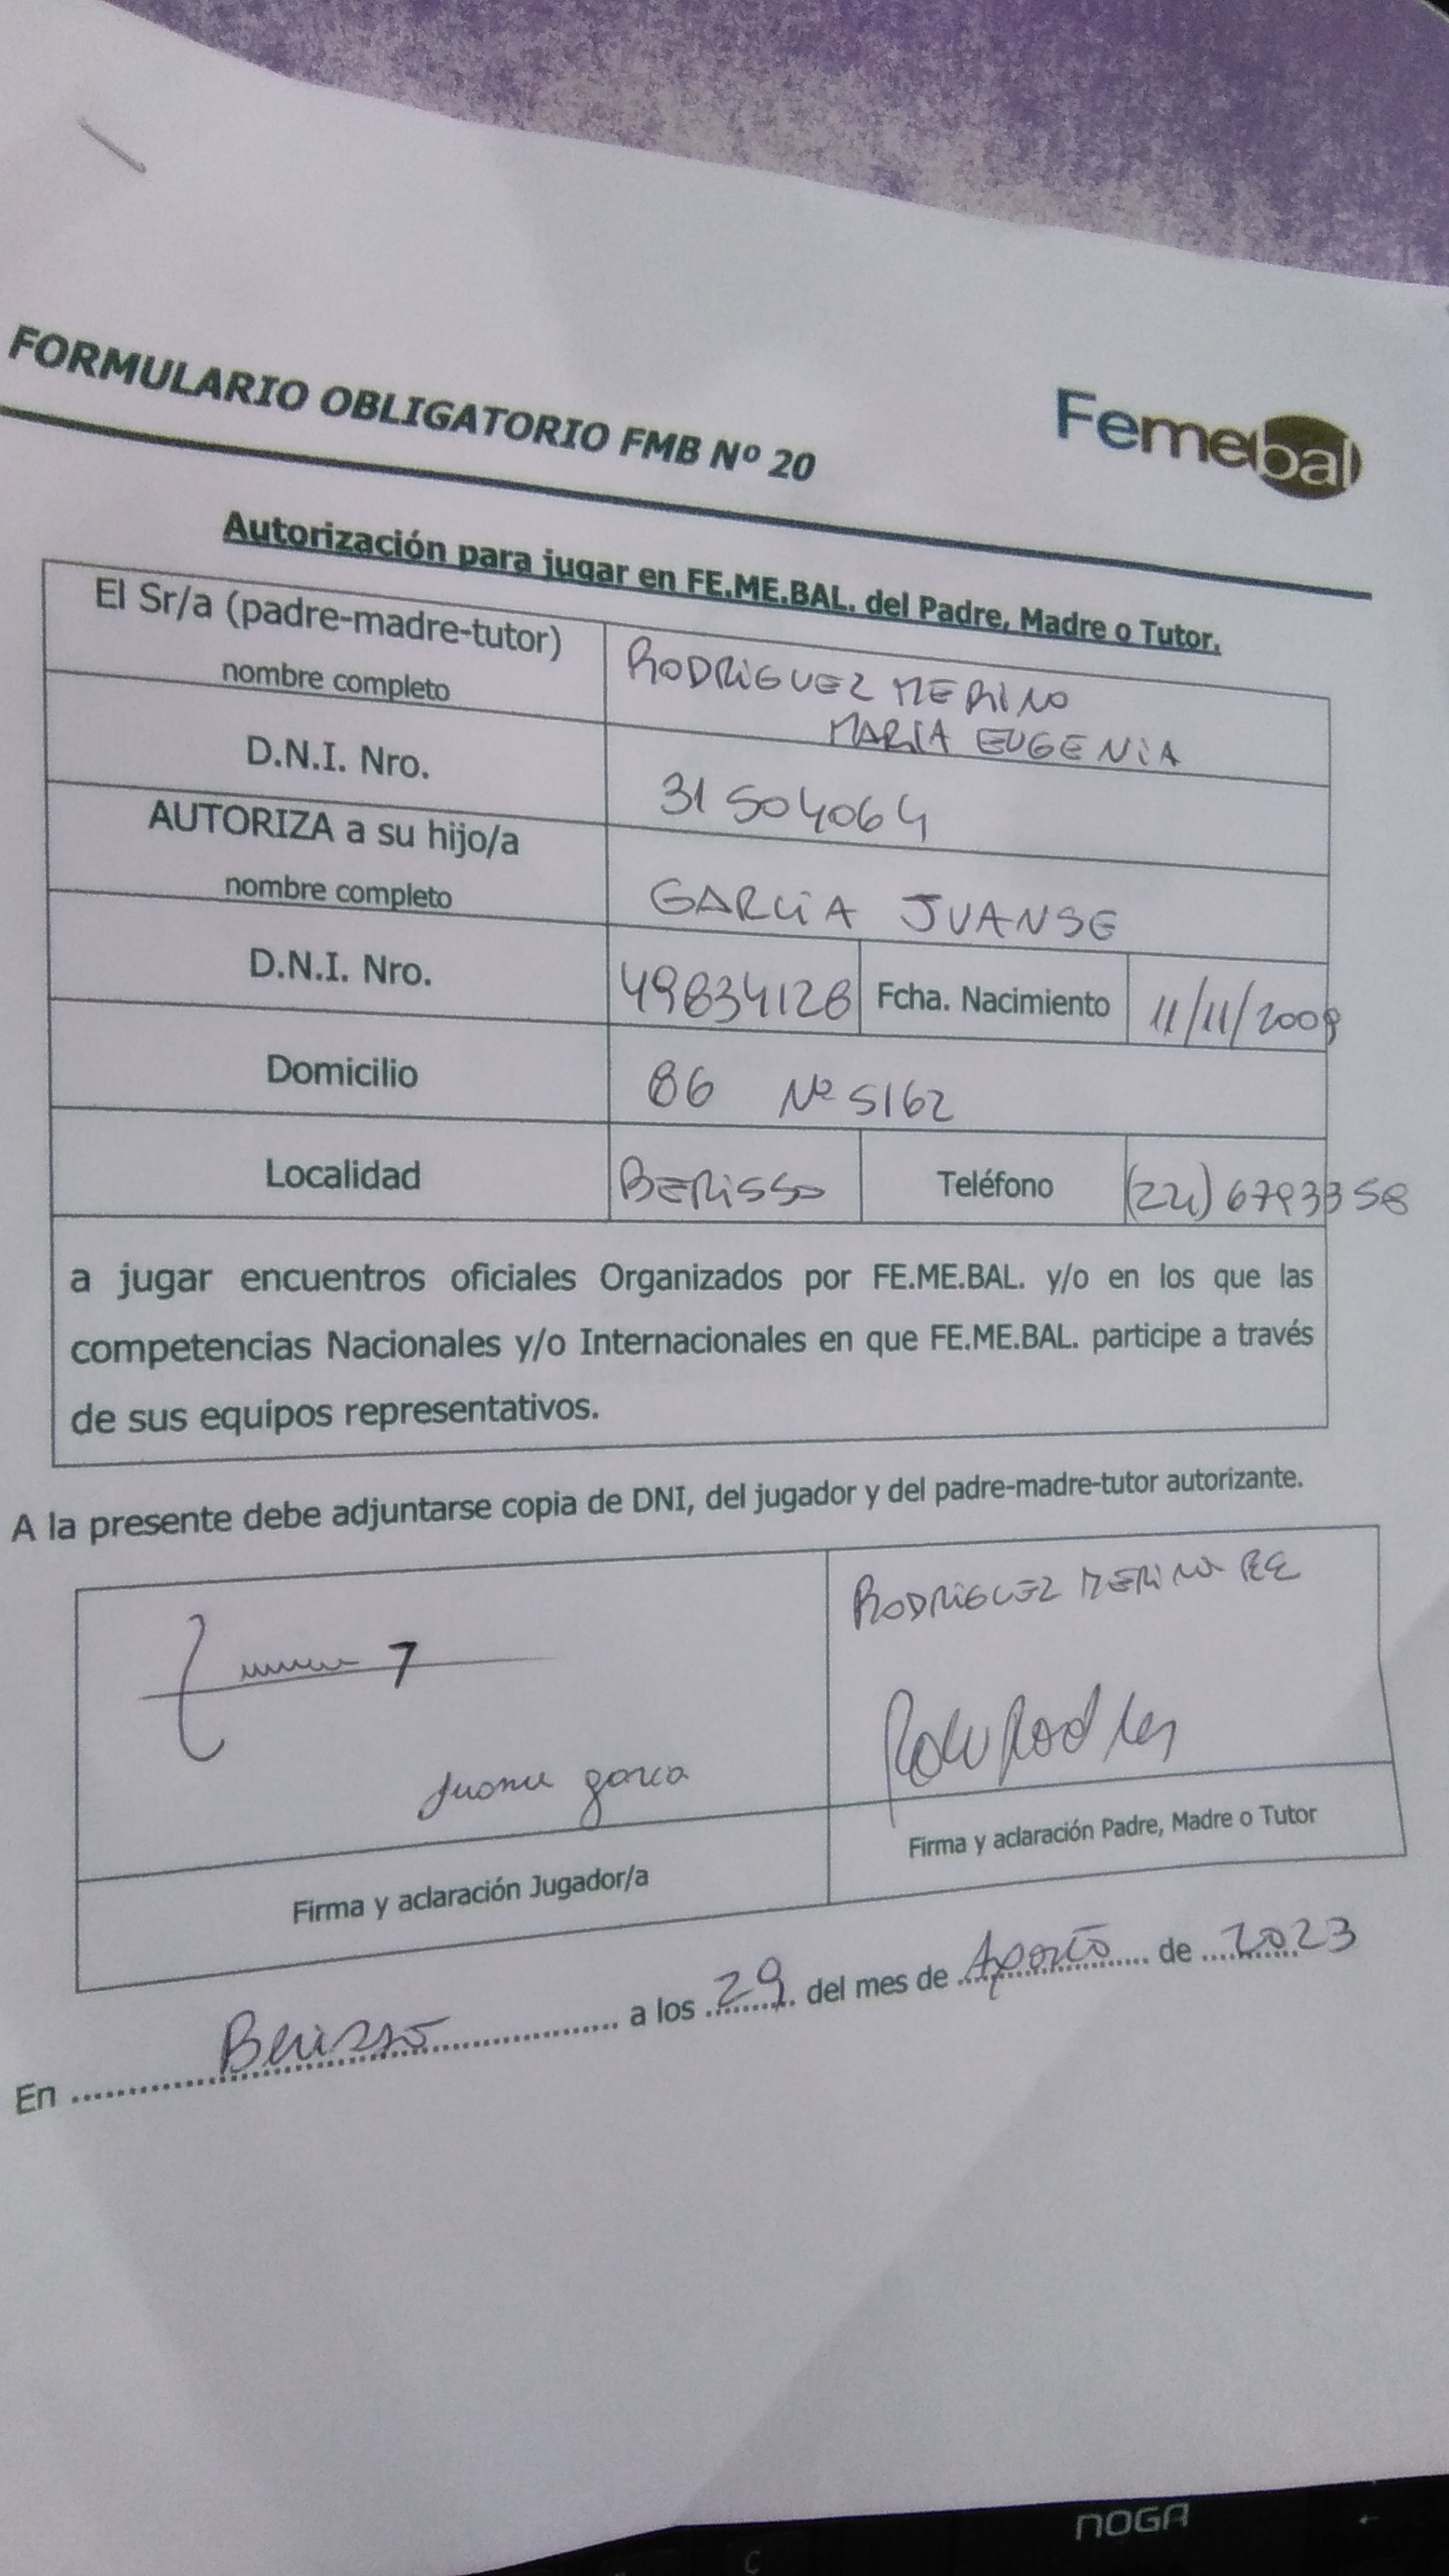 FORMULARIO OBLIGATORIO FMB Nº 20
Femebal
Autorización para jugar en FE.ME.BAL. del Padre, Madre o Tutor.
El Sr/a (padre-madre-tutor)
nombre completo
RODRIGUEZ MERINO
MARIA EUGENIA
D.N.I. Nro.
31504064
AUTORIZA a su hijo/a
nombre completo
GARCIA JUANSE
D.N.I. Nro.
49834128
Fcha. Nacimiento
11/11/2009
Domicilio
86 Nº 5162
Localidad
BERISSO
Teléfono
(221) 6793358
a jugar encuentros oficiales Organizados por FE.ME.BAL. y/o en los que las
competencias Nacionales y/o Internacionales en que FE.ME.BAL. participe a través
de sus equipos representativos.
A la presente debe adjuntarse copia de DNI, del jugador y del padre-madre-tutor autorizante.
RODRIGUEZ MERINO
7
Juanse garcia
Firma y aclaración Jugador/a
Firma y aclaración Padre, Madre o Tutor
En Berisso a los 29 del mes de Agosto de 2023
NOGA
Ç